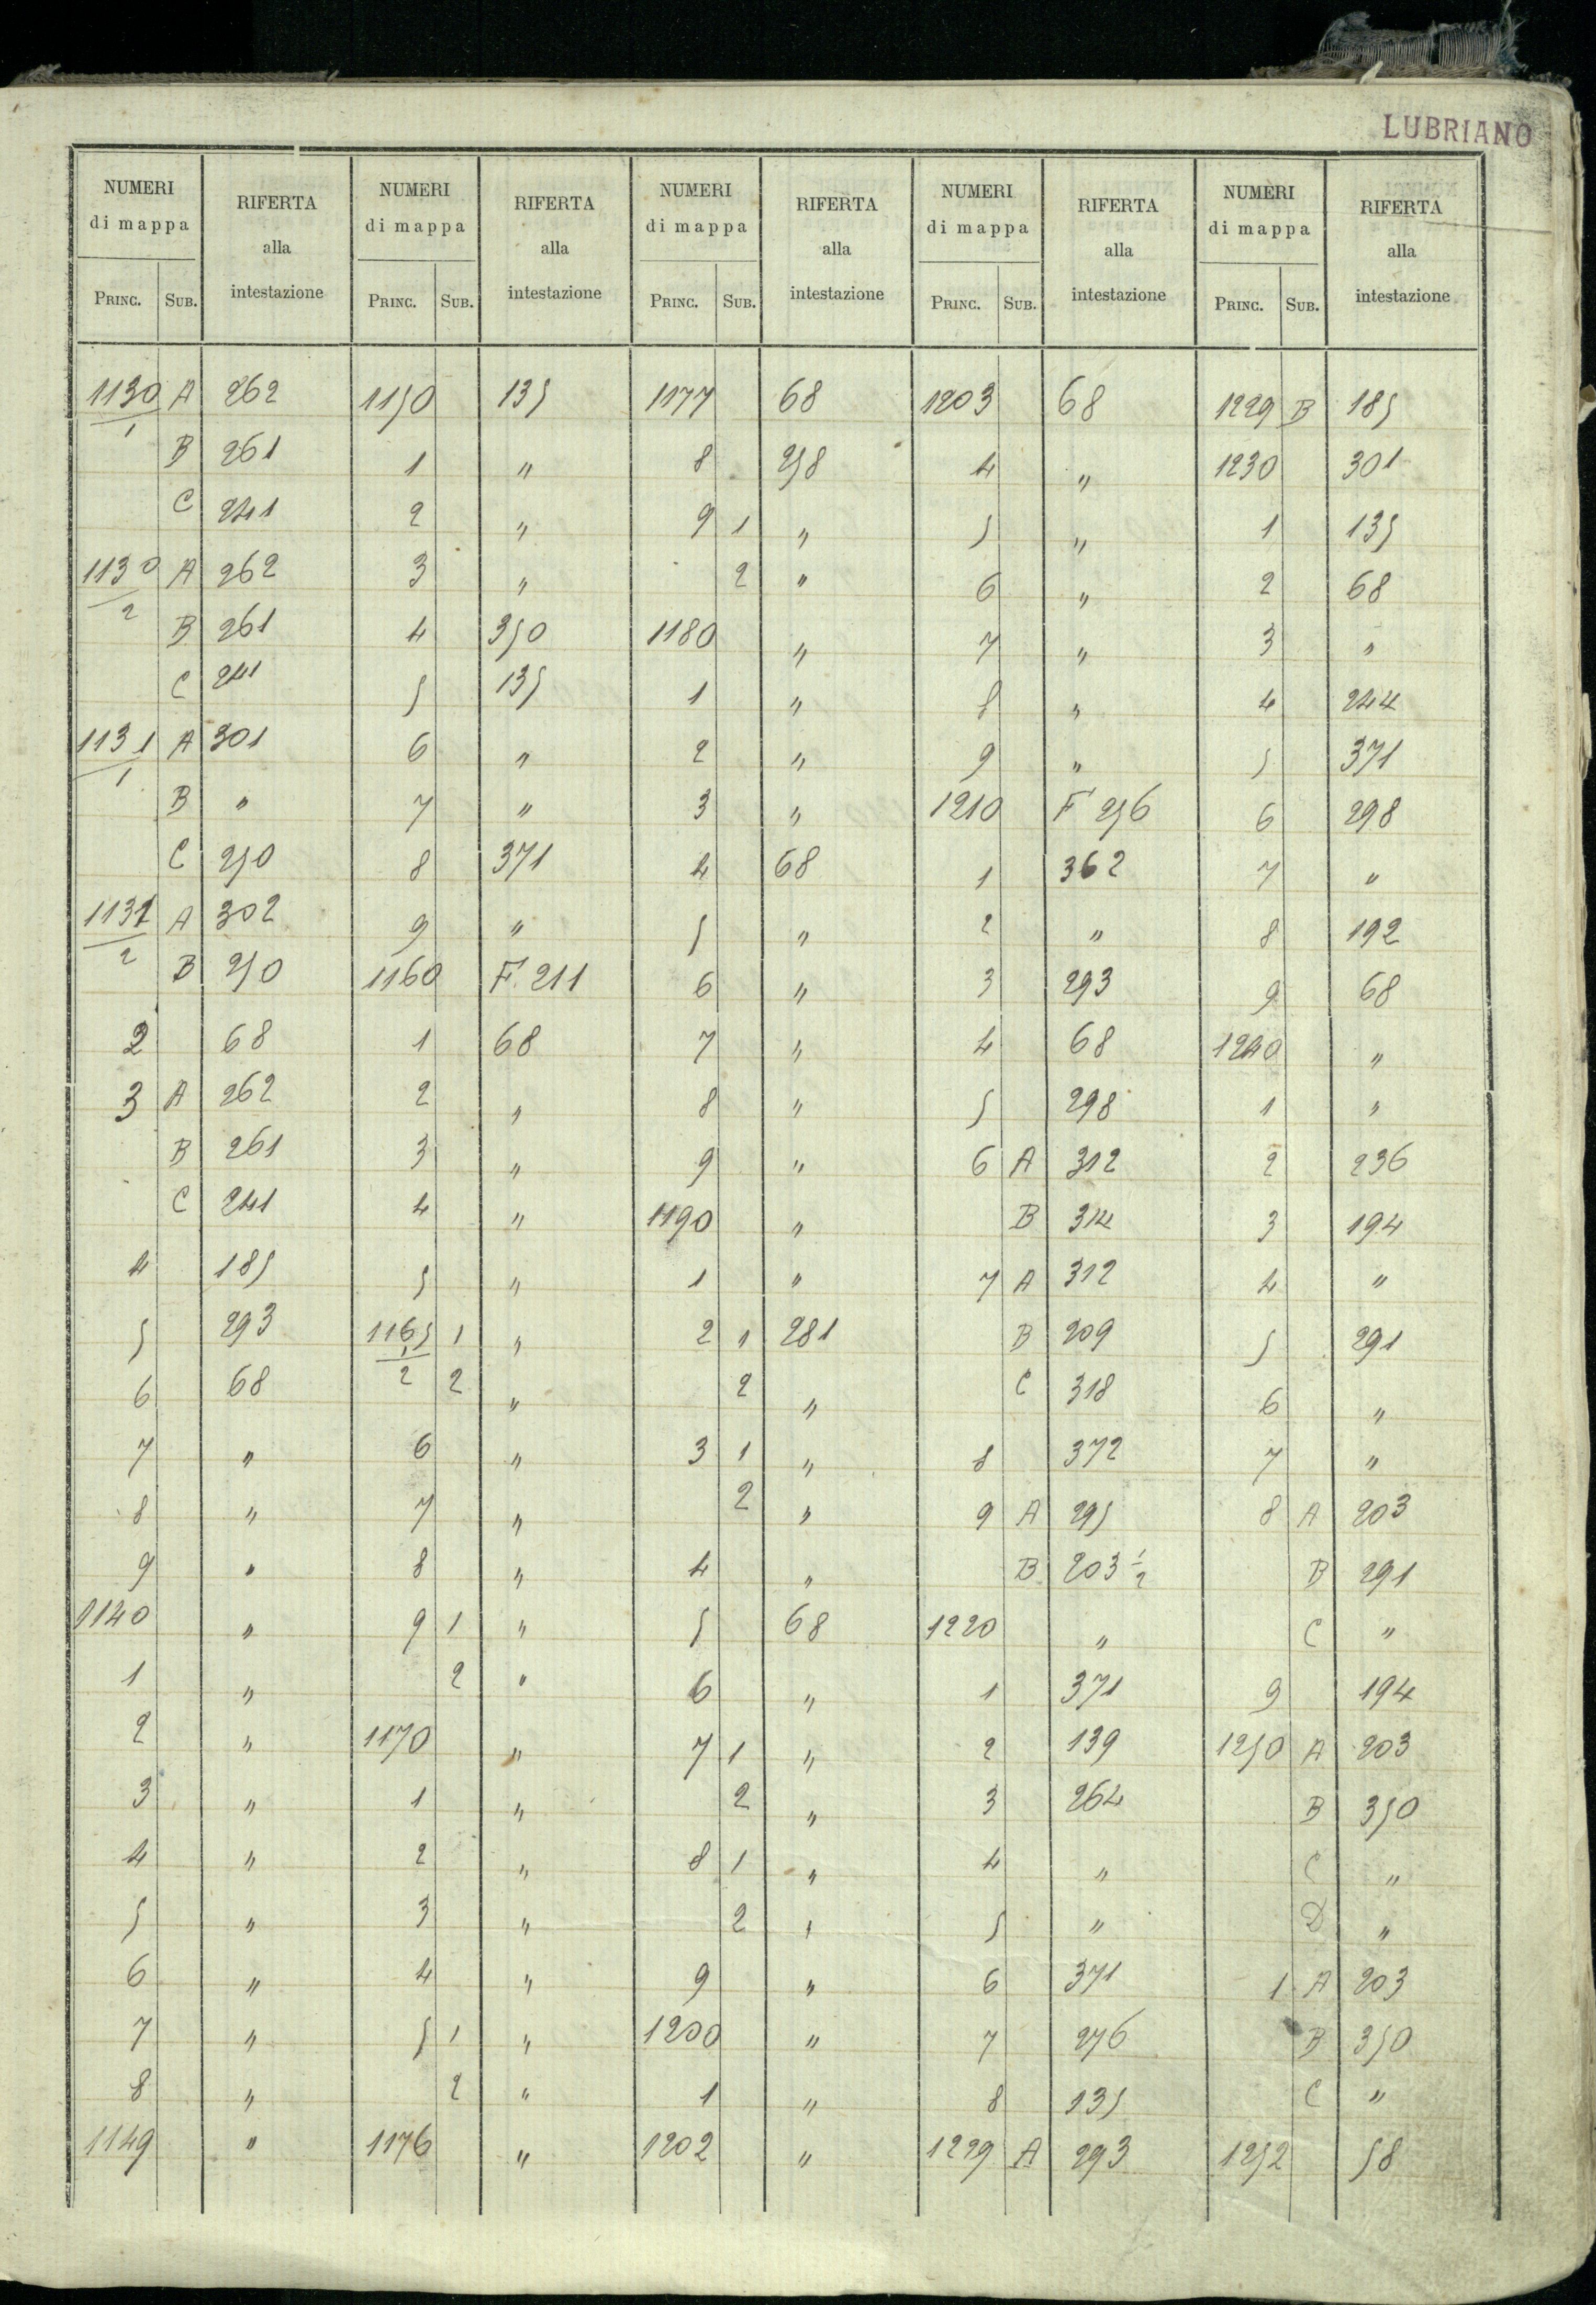 LUBRIANO
NUMERI di mappa RIFERTA alla intestazione NUMERI di mappa RIFERTA alla intestazione NUMERI di mappa RIFERTA alla intestazione NUMERI di mappa RIFERTA alla intestazione NUMERI di mappa RIFERTA alla intestazione
PRINC. SUB. PRINC. SUB. PRINC. SUB. PRINC. SUB. PRINC. SUB.
1130/1 A 262 1150 135 1177 68 1203 68 1229 B 185
B 261 1 " 8 258 4 " 1230 301
C 241 2 " 9 1 " 5 " 1 135
1130/2 A 262 3 " 2 " 6 " 2 68
B 261 4 350 1180 " 7 " 3 "
C 241 5 135 1 " 8 " 4 244
1131/1 A 301 6 " 2 " 9 " 5 371
B " 7 " 3 " 1210 F 256 6 298
C 250 8 371 4 68 1 362 7 "
1131/2 A 302 9 " 5 " 2 " 8 192
B 250 1160 F. 211 6 " 3 293 9 68
2 68 1 68 7 " 4 68 1240 "
3 A 262 2 " 8 " 5 298 1 "
B 261 3 " 9 " 6 A 312 2 236
C 241 4 " 1190 " B 314 3 194
4 185 5 " 1 " 7 A 312 4 "
5 293 1165 1/2 1 " 2 1 281 B 209 5 291
6 68 2 " 2 " C 318 6 "
7 " 6 " 3 1 " 8 372 7 "
8 " 7 " 2 " 9 A 295 8 A 203
9 " 8 " 4 " B 203 1/2 B 291
1140 " 9 1 " 5 68 1220 " C "
1 " 2 " 6 " 1 371 9 194
2 " 1170 " 7 1 " 2 139 1250 A 203
3 " 1 " 2 " 3 264 B 350
4 " 2 " 8 1 " 4 " C "
5 " 3 " 2 " 5 " D "
6 " 4 " 9 " 6 371 1 A 203
7 " 5 1 " 1200 " 7 276 B 350
8 " 2 " 1 " 8 135 C "
1149 " 1176 " 1202 " 1229 A 293 1252 58